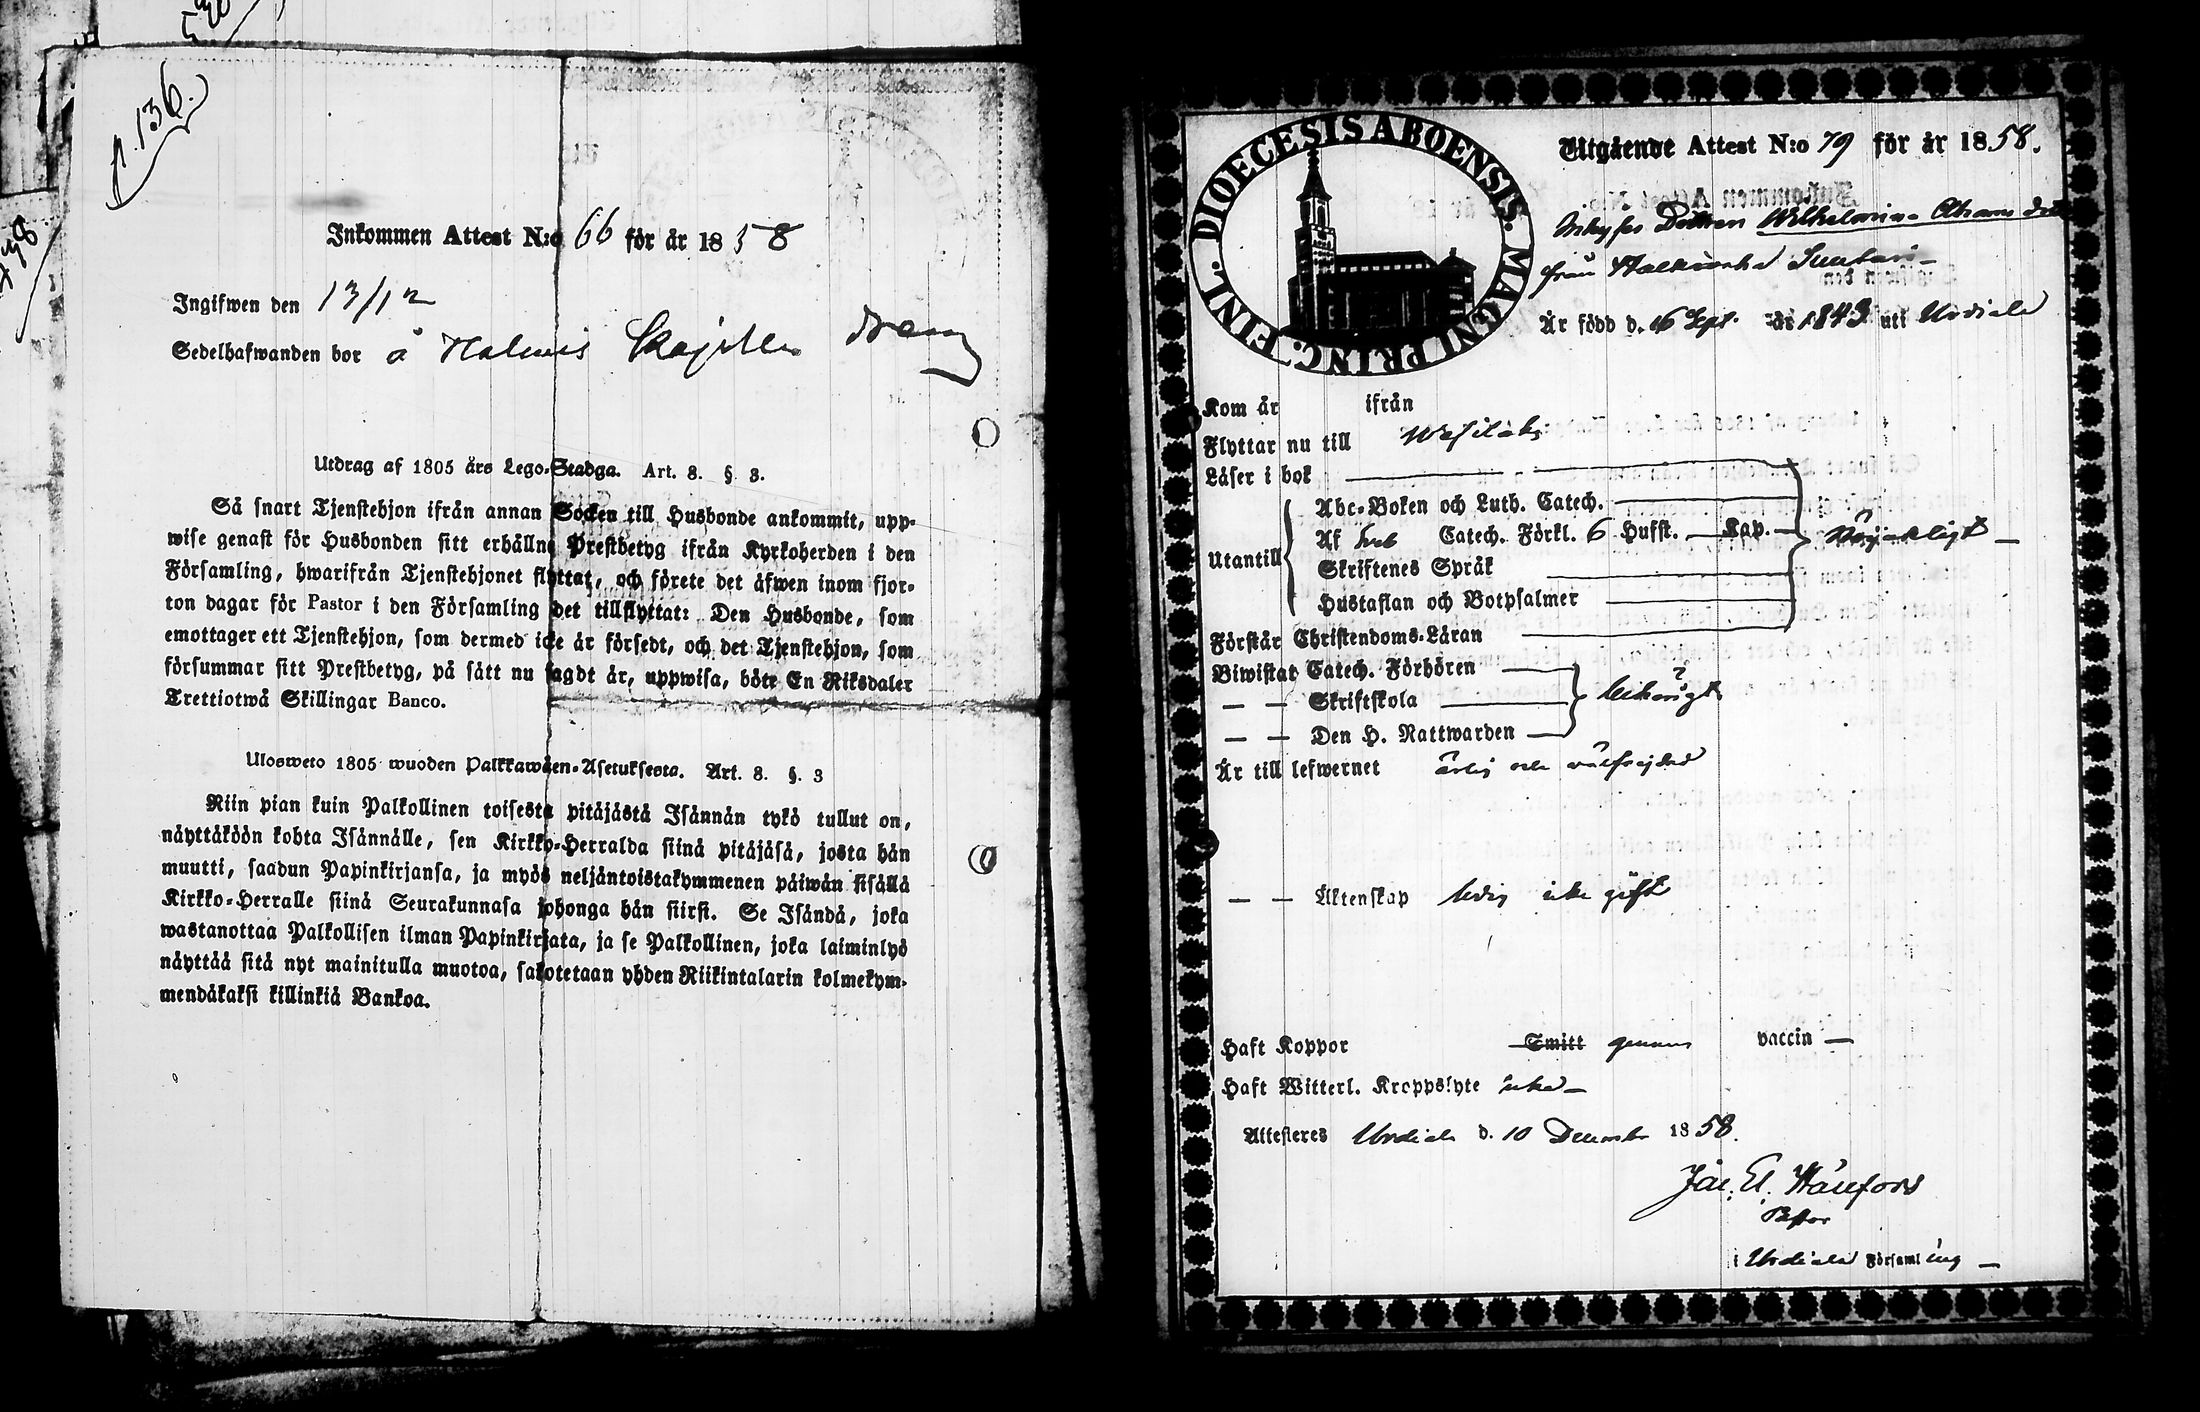 p. 136.
Inkommen Attest N:o 66 för år 1858
Ingifwen den 13/12
Sedelhafwanden bor å
Utdrag af 1805 års Lego-Stadga. Art. 8. § 3.
Så snart Tjenstehjon ifrån annan Socken till Husbonde ankommit, upp-
wise genast för Husbonden sitt erhållne Prestbetyg ifrån Kyrkoherden i den
Församling, hwarifrån Tjenstehjonet flyttat, och förete det äfwen inom fjor-
ton dagar för Pastor i den Församling det tillflyttat: Den Husbonde, som
emottager ett Tjenstehjon, som dermed icke är försedt, och det Tjenstehjon, som
försummar sitt Prestbetyg, på sätt nu sagdt är, uppwisa, böte En Riksdaler
Trettiotwå Skillingar Banco.
Ulosweto 1805 wuoden Palkkawäen-Asetuksesta. Art. 8. §. 3
Niin pian kuin Palkollinen toisesta pitäjästä Isännän tykö tullut on,
näyttäköön kohta Isännälle, sen Kirkko-Herralda siinä pitäjäsä, josta hän
muutti, saadun Papinkirjansa, ja myös neljäntoistakymmenen päiwän sisällä
Kirkko-Herralle siinä Seurakunnasa johonga hän siirsi. Se Isändä, joka
wastanottaa Palkollisen ilman Papinkirjata, ja se Palkollinen, joka laiminlyö
näyttää sitä nyt mainitulla muotoa, sakotetaan yhden Riikintalarin kolmekym-
mendäkaksi killinkiä Bankoa.
DIOECESIS ABOENSIS. MAGNI PRINC. FINL.
Utgående Attest N:o 79 för år 1858.
Inhyses Dottren Wilhelmina Abrams dr
från
Är född d. 16 Sept. år 1843 uti Urdiala
Kom år ifrån
Flyttar nu till Wesilaks
Läser i bok
Utantill
Abc-Boken och Luth. Catech.
Af Catech. Förkl. 6 Hufst. — Kap. —
Skriftenes Språk
Hustaflan och Botpsalmer
Förstår Christendoms-Läran
Biwistat Catech. Förhören
— — Skriftskola
— — Den H. Nattwarden
Är till lefwernet ärlig och wälfrejdad
— — Äktenskap ledig icke gift
Haft Koppor Smitt genom vaccin —
Haft Witterl. Kroppslyte icke —
Attesteres Urdiala d. 10 December 1858.
Pastor
i Urdiala Församling —